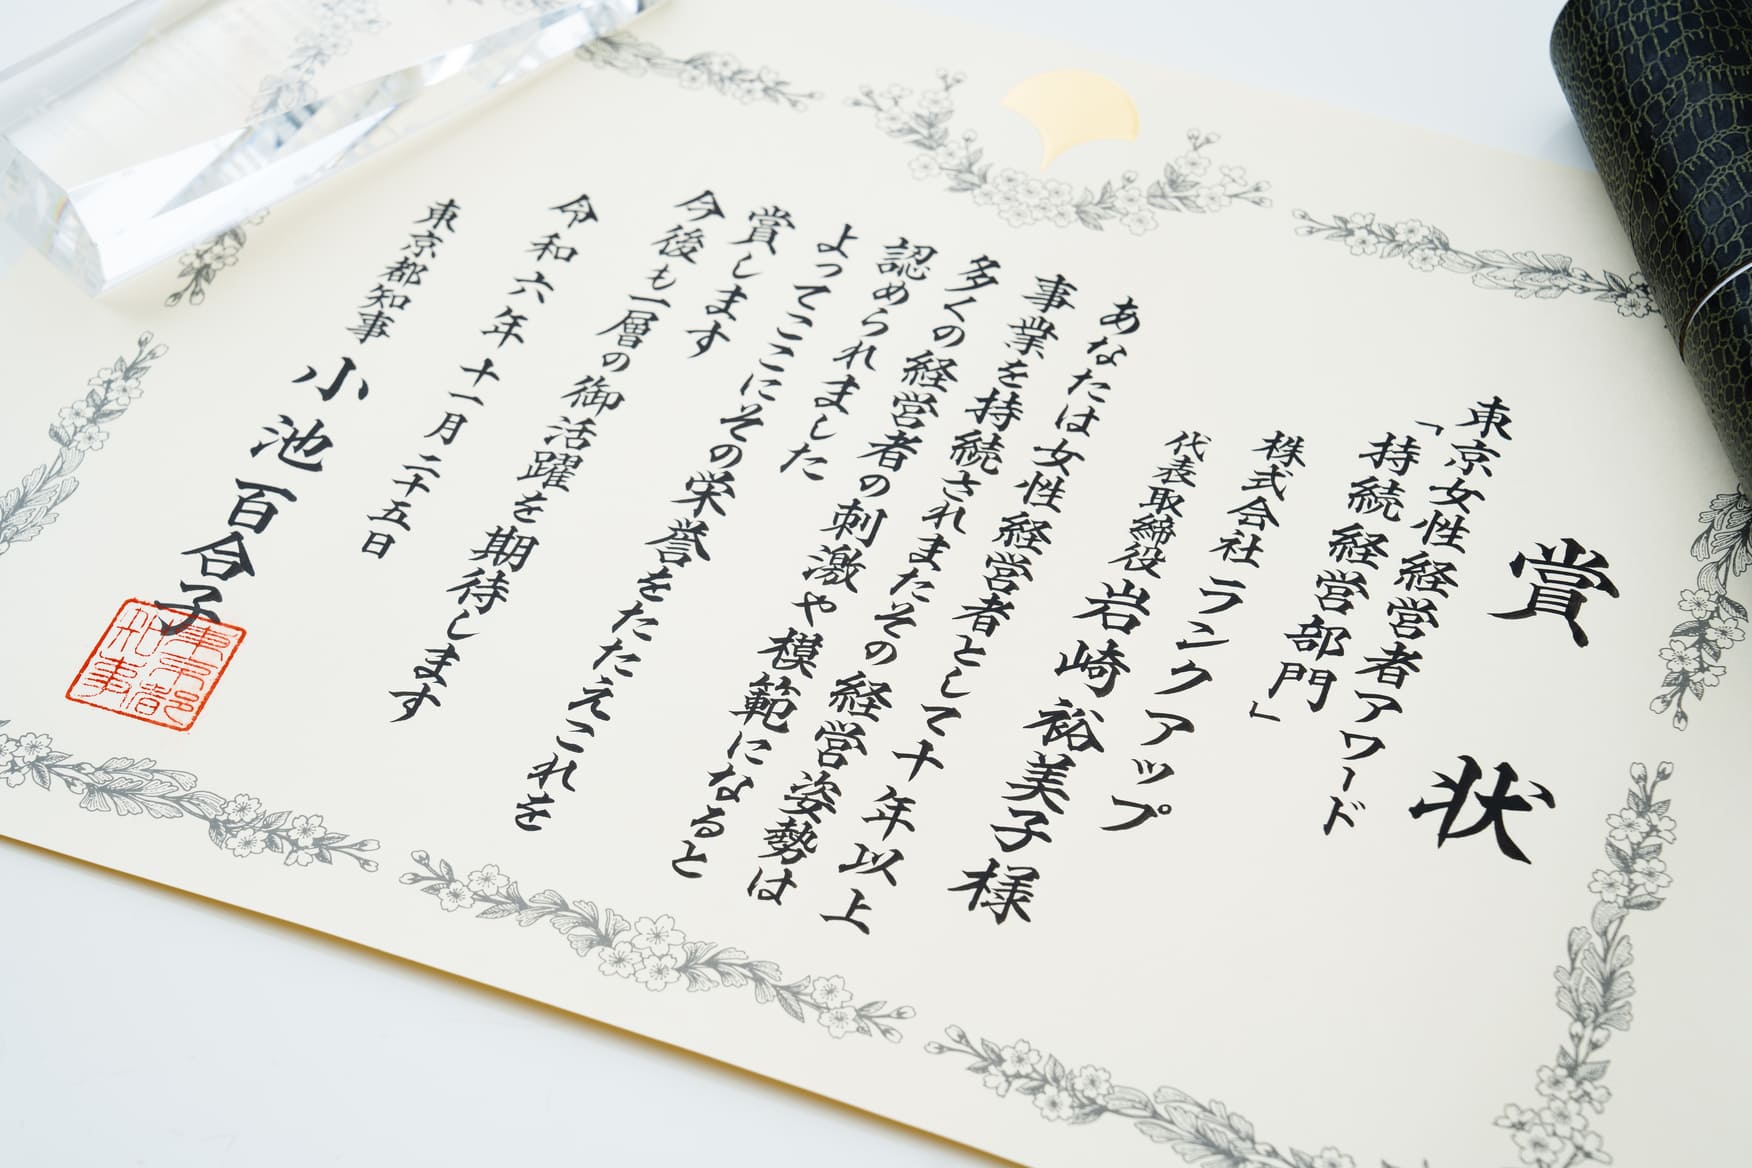 賞状
東京女性経営者アワード
「持続経営部門」
株式会社ランクアップ
代表取締役 岩崎裕美子様
あなたは女性経営者として十年以上
事業を持続されまたその経営姿勢は
多くの経営者の刺激や模範になると
認められました
よってここにその栄誉をたたえこれを
賞します
今後も一層の御活躍を期待します
令和六年十一月二十五日
東京都知事 小池百合子
東京都知事